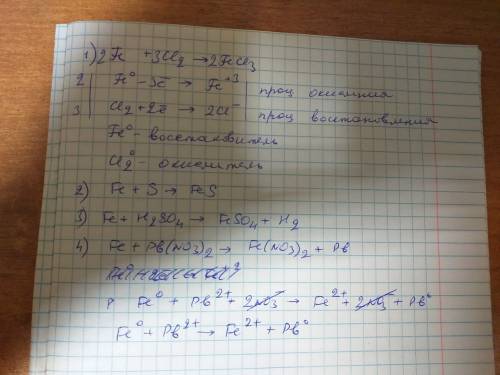 1) 2Fe + 3Cl₂ → 2FeCl₃
2 | Fe⁰ - 3ē → Fe⁺³ | проц окисления
3 | Cl₂ + 2ē → 2Cl⁻ | проц восстановления
Fe⁰ - восстановитель
Cl₂⁰ - окислитель
2) Fe + S → FeS
3) Fe + H₂SO₄ → FeSO₄ + H₂
4) Fe + Pb(NO₃)₂ → Fe(NO₃)₂ + Pb
Fe⁰ + Pb²⁺ + 2NO₃ → Fe²⁺ + 2NO₃ + Pb⁰
Fe⁰ + Pb²⁺ → Fe²⁺ + Pb⁰